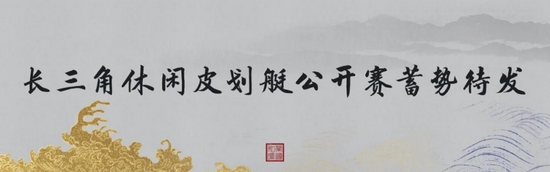 长三角休闲皮划艇公开赛蓄势待发